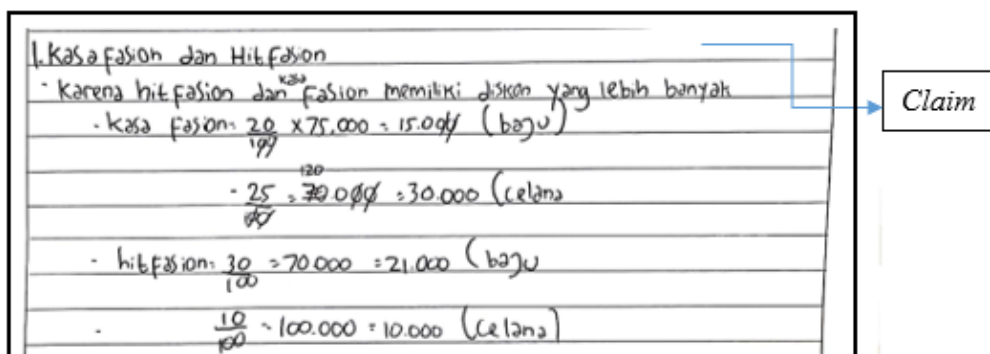 1. Kasa Fasion dan Hit Fasion
- Karena hit Fasion dan kasa Fasion memiliki diskon yang lebih banyak
Claim
- Kasa Fasion: 20/100 x 75.000 = 15.000 (baju)
- 25/100 = 120.000 = 30.000 (celana
- hit Fasion: 30/100 = 70.000 = 21.000 (baju
- 10/100 = 100.000 = 10.000 (celana)